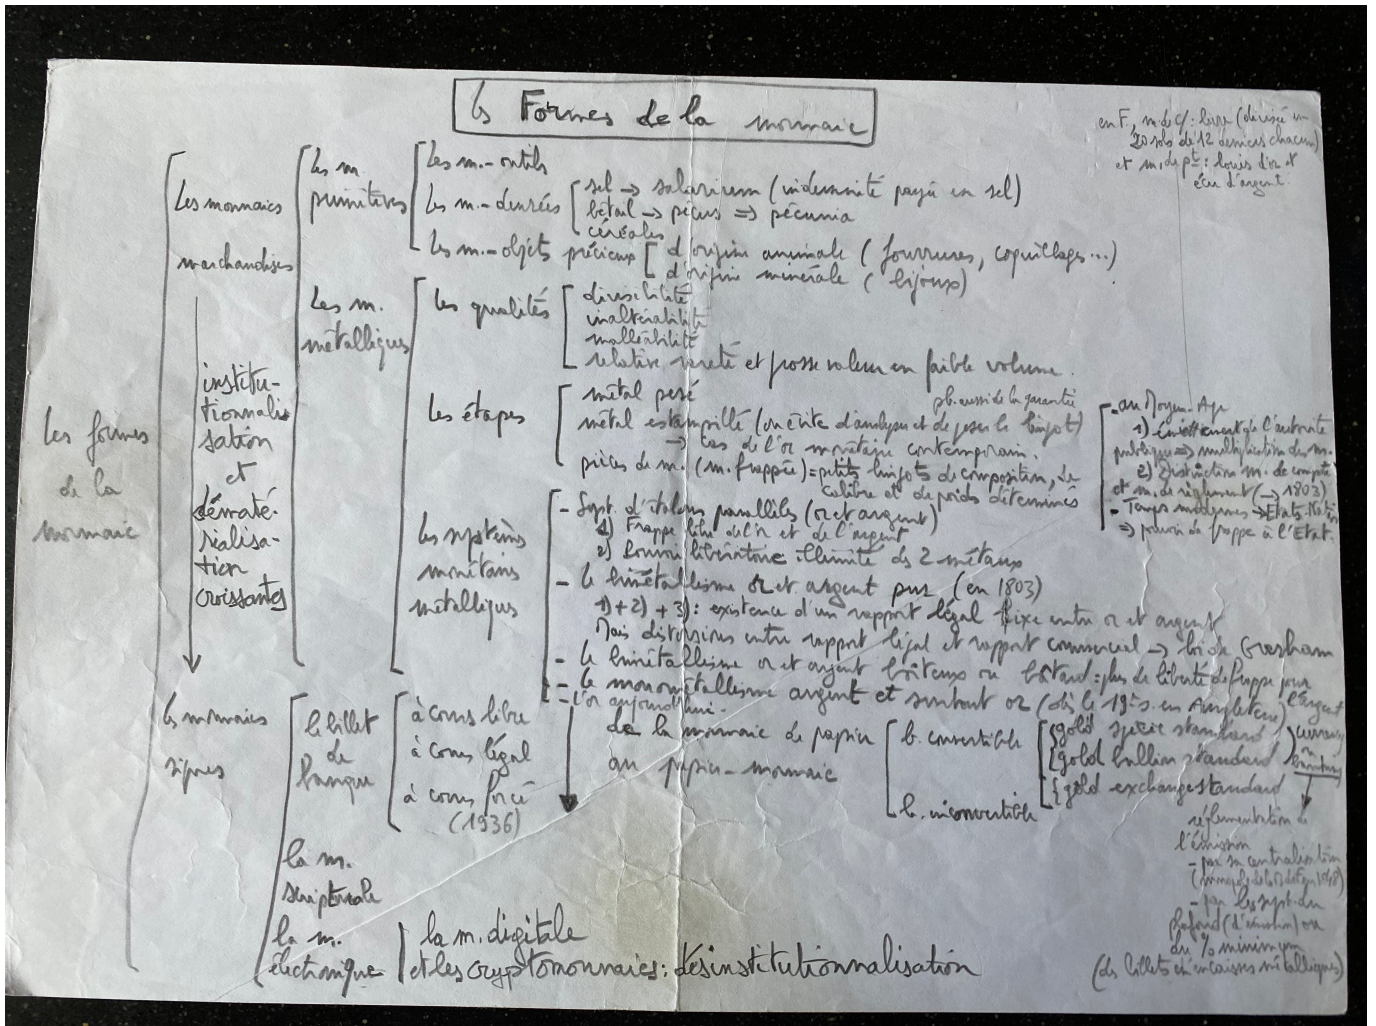 les Formes de la monnaie
en F, m. de c/: livre (divisée en
20 sols de 12 deniers chacun)
et m. de pt : louis d'or et
écu d'argent.
les formes
de la
monnaie
Les monnaies
marchandises
institu-
tionnali-
sation
et
dématé-
rialisa-
tion
croissantes
les monnaies
signes
Les m.
primitives
Les m.-outils
Les m.-denrées
sel → salarium (indemnité payée en sel)
bétail → pécus => pécunia
céréales
Les m.-objets précieux
d'origine animale ( fourrures, coquillages...)
d'origine minérale ( bijoux)
Les m.
métalliques
Les qualités
divisibilité
inaltérabilité
malléabilité
relative rareté et grosse valeur en faible volume.
Les étapes
métal pesé
pb. aussi de la garantie
métal estampillé (on évite d'analyser et de peser le lingot)
→ cas de l'or monétaire contemporain.
pièces de m. (m. frappée) = petits lingots de composition, de
calibre et de poids déterminés
- au Moyen-Age
1) émiettement de l'autorité
publique => multiplication des m.
2) Distinction m. de compte
et m. de règlement (→ 1803)
- Temps modernes → Etats-Nation
=> pouvoir de frappe à l'Etat.
Les systèmes
monétaires
métalliques
- Syst. d'étalons parallèles (or et argent)
1) Frappe libre de l'or et de l'argent
2) Pouvoir libératoire illimité des 2 métaux
- le bimétallisme or et argent pur (en 1803)
1) + 2) + 3) : existence d'un rapport légal fixe entre or et argent
Mais distorsions entre rapport légal et rapport commercial → loi de Gresham
- le bimétallisme or et argent boîteux ou bâtard : plus de liberté de frappe pour
l'argent
- le monométallisme argent et surtout or (dès le 19e s. en Angleterre)
- L'or aujourd'hui.
le billet
de
banque
à cours libre
à cours légal
à cours forcé
(1936)
de la monnaie de papier
au papier-monnaie
b. convertible
gold specie standard
gold bullion standard
gold exchange standard
b. inconvertible
currency
banking
réglementation de
l'émission
- par sa centralisation
- par les syst. du
plafond (d'émission) ou
du % minimum
(des billets en encaisses métalliques)
la m.
scripturale
la m.
électronique
la m. digitale
et les cryptomonnaies : désinstitutionnalisation